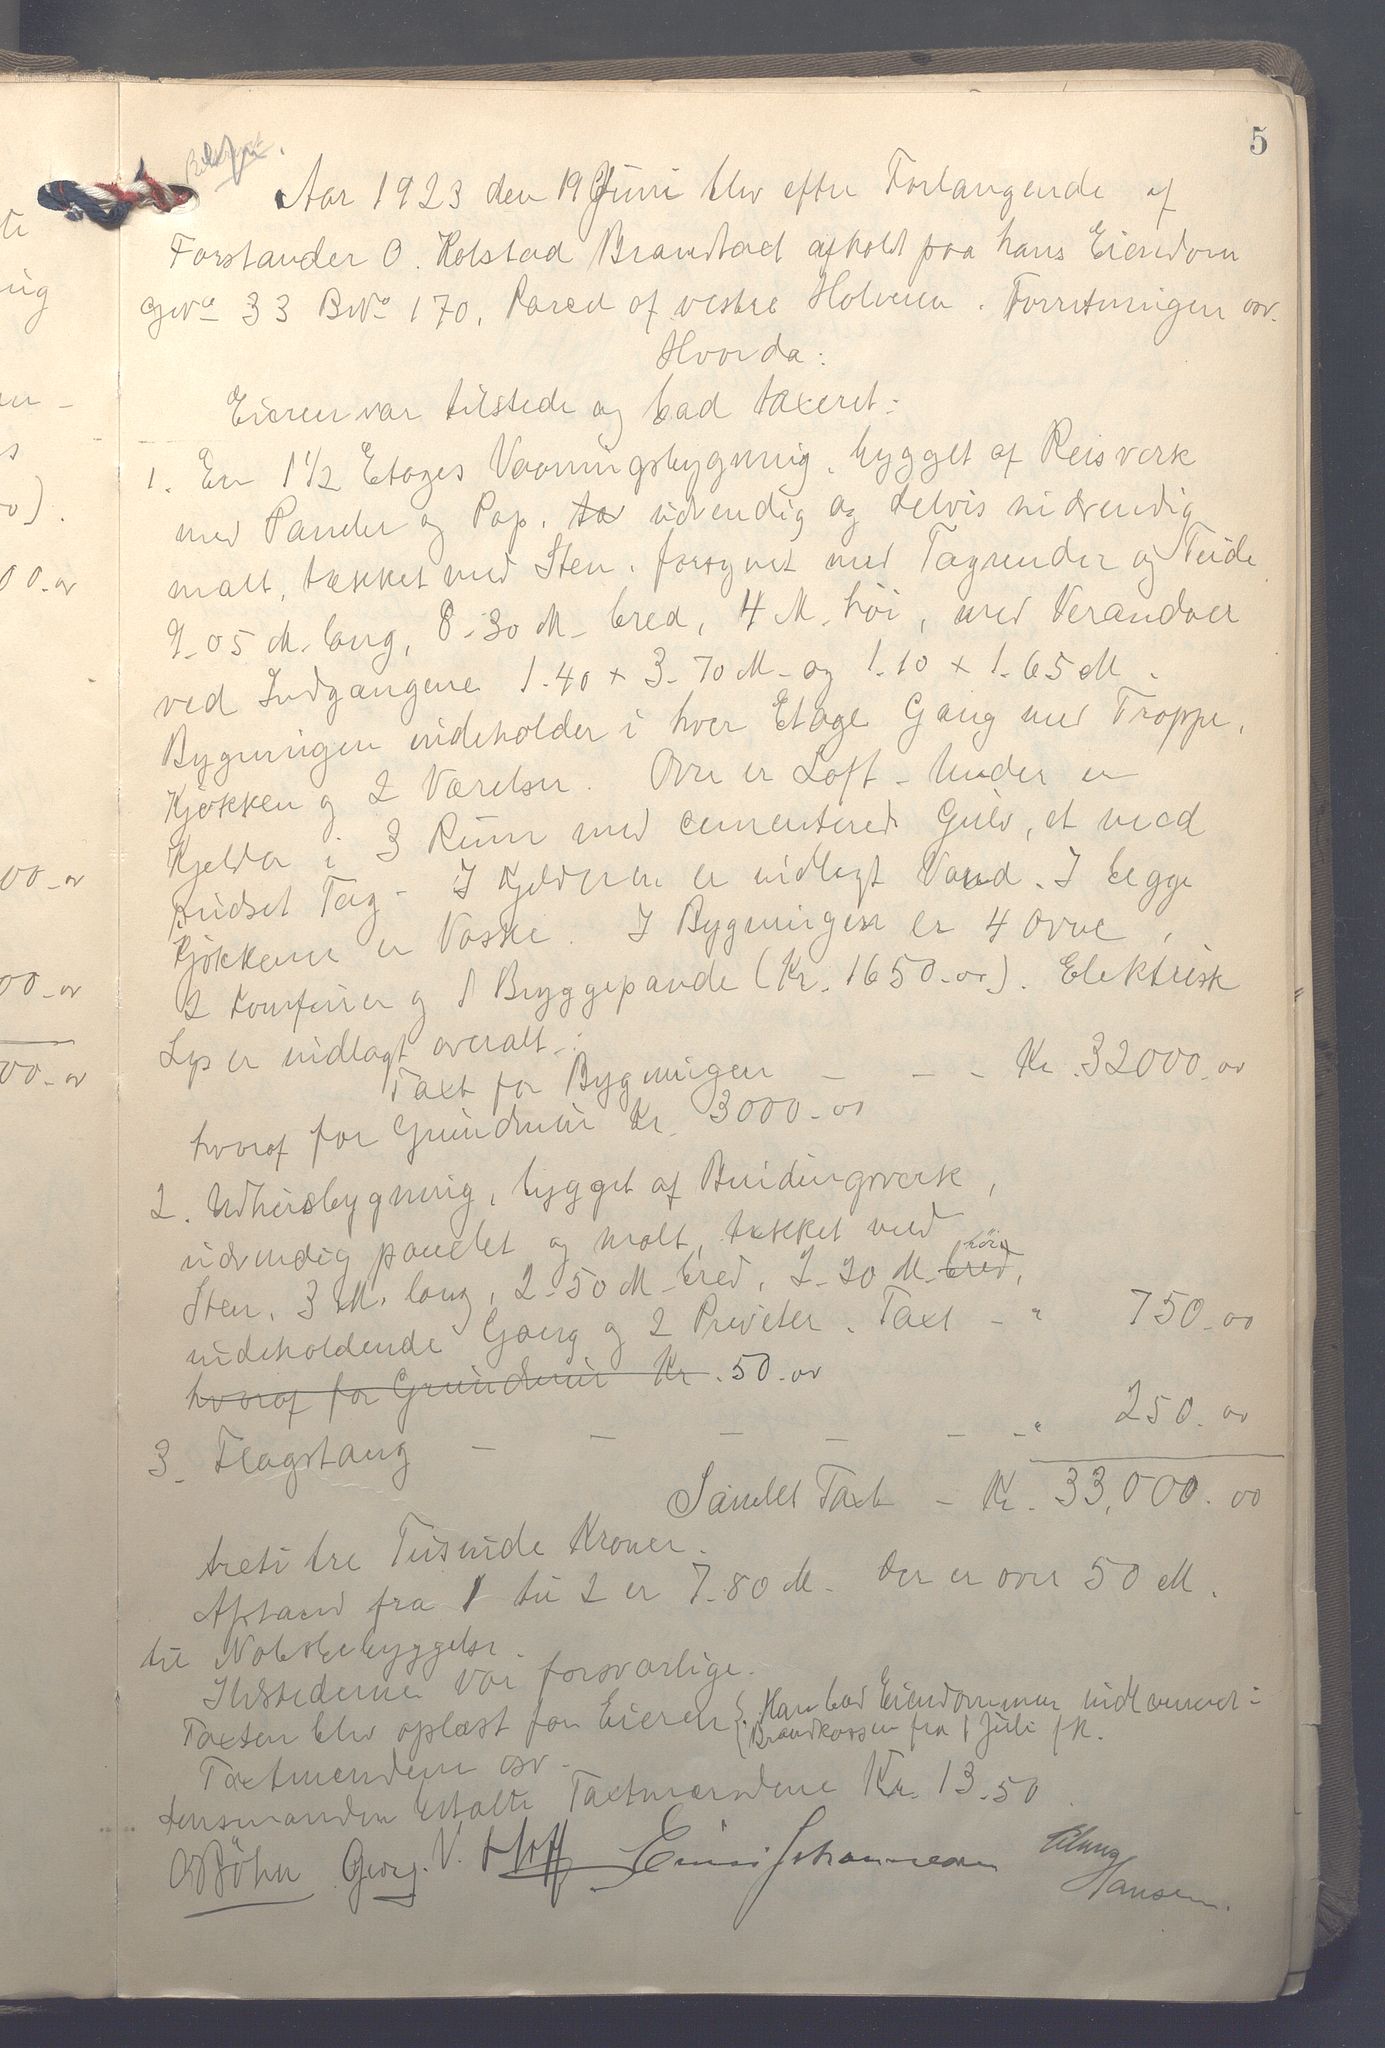 5
Aar 1923 den 19 Juni blev efter Forlangende af
Forstander O. Kolstad Brandtaxt afholdt paa hans Eiendom
GNo 33 BNo 170, Parcel af vestre Holmen. Forretningen osv.
Hvorda:
Eieren var tilstede og bad taxeret:
1. En 1½ Etages Vaaningsbygning, bygget af Reisverk
med Pander og Pap. udvendig og delvis indvendig
malt, tækket med Sten. forsynet med Tagrender og Neide
9-05 M. lang, 8-30 M. bred, 4 M. høi, med Verandaer
ved Indgangene 1-40 x 3-70 M. og 1-10 x 1-65 M.
Bygningen indeholder i hver Etage Gang med Trappe,
Kjøkken og 2 Værelser. Over er Loft - Under er
Kjelder i 3 Rum med cementered Gulv, et med
pudset Tag - I Kjelderen er indlagt Vand. I begge
Kjøkkener er Vaske. I Bygningen er 4 Ovne,
2 Komfurer og 1 Bryggepande (Kr. 1650-00). Elektrisk
Lys er indlagt overalt.:
Taxt for Bygningen - - - Kr. 32000-00
hvoraf for Grundmur Kr. 3000-00
2. Udhusbygning, bygget af Bindingsverk,
udvendig panelet og malt, tækket med
Sten, 3 M. lang, 2-50 M bred, 2-20 M. bred, høi
indeholdende Gang og 2 Priveter. Taxt - " 750-00
hvoraf for Grundmur Kr. 50-00
3. Flagstang - - - - - - " 250-00
Samlet Taxt - Kr. 33,000-00
treti tre Tusinde Kroner.
Afstand fra 1 til 2 er 7-80 M - Der er over 50 M.
til Nabobebyggelse.
Ildstederne var forsvarlige.
Taxten blev oplæst for Eieren. Han bad Eiendommen indlemmet i
Brandkassen fra 1 Juli f k.
Taxtmændene osv.
Lensmanden betalte Taxtmændene Kr. 13-50.
O Bøhn Georg. V. Hoff Einar Johannesen
Hansen.